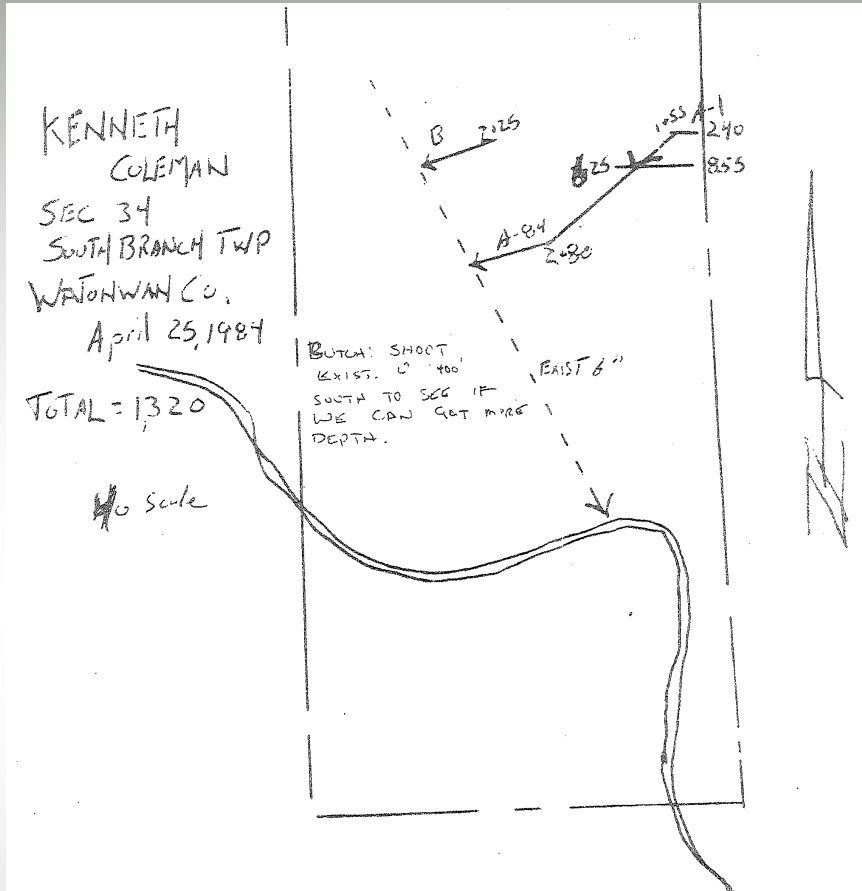 KENNETH
COLEMAN
SEC 34
SOUTH BRANCH TWP
WATONWAN CO.
April 25, 1984
TOTAL = 1,320
No Scale
B 2+25
A-1
240
855
A-84
2+80
BUTCH: SHOOT
EXIST. 6" 400'
SOUTH TO SEE IF
WE CAN GET MORE
DEPTH.
EXIST 6"
N